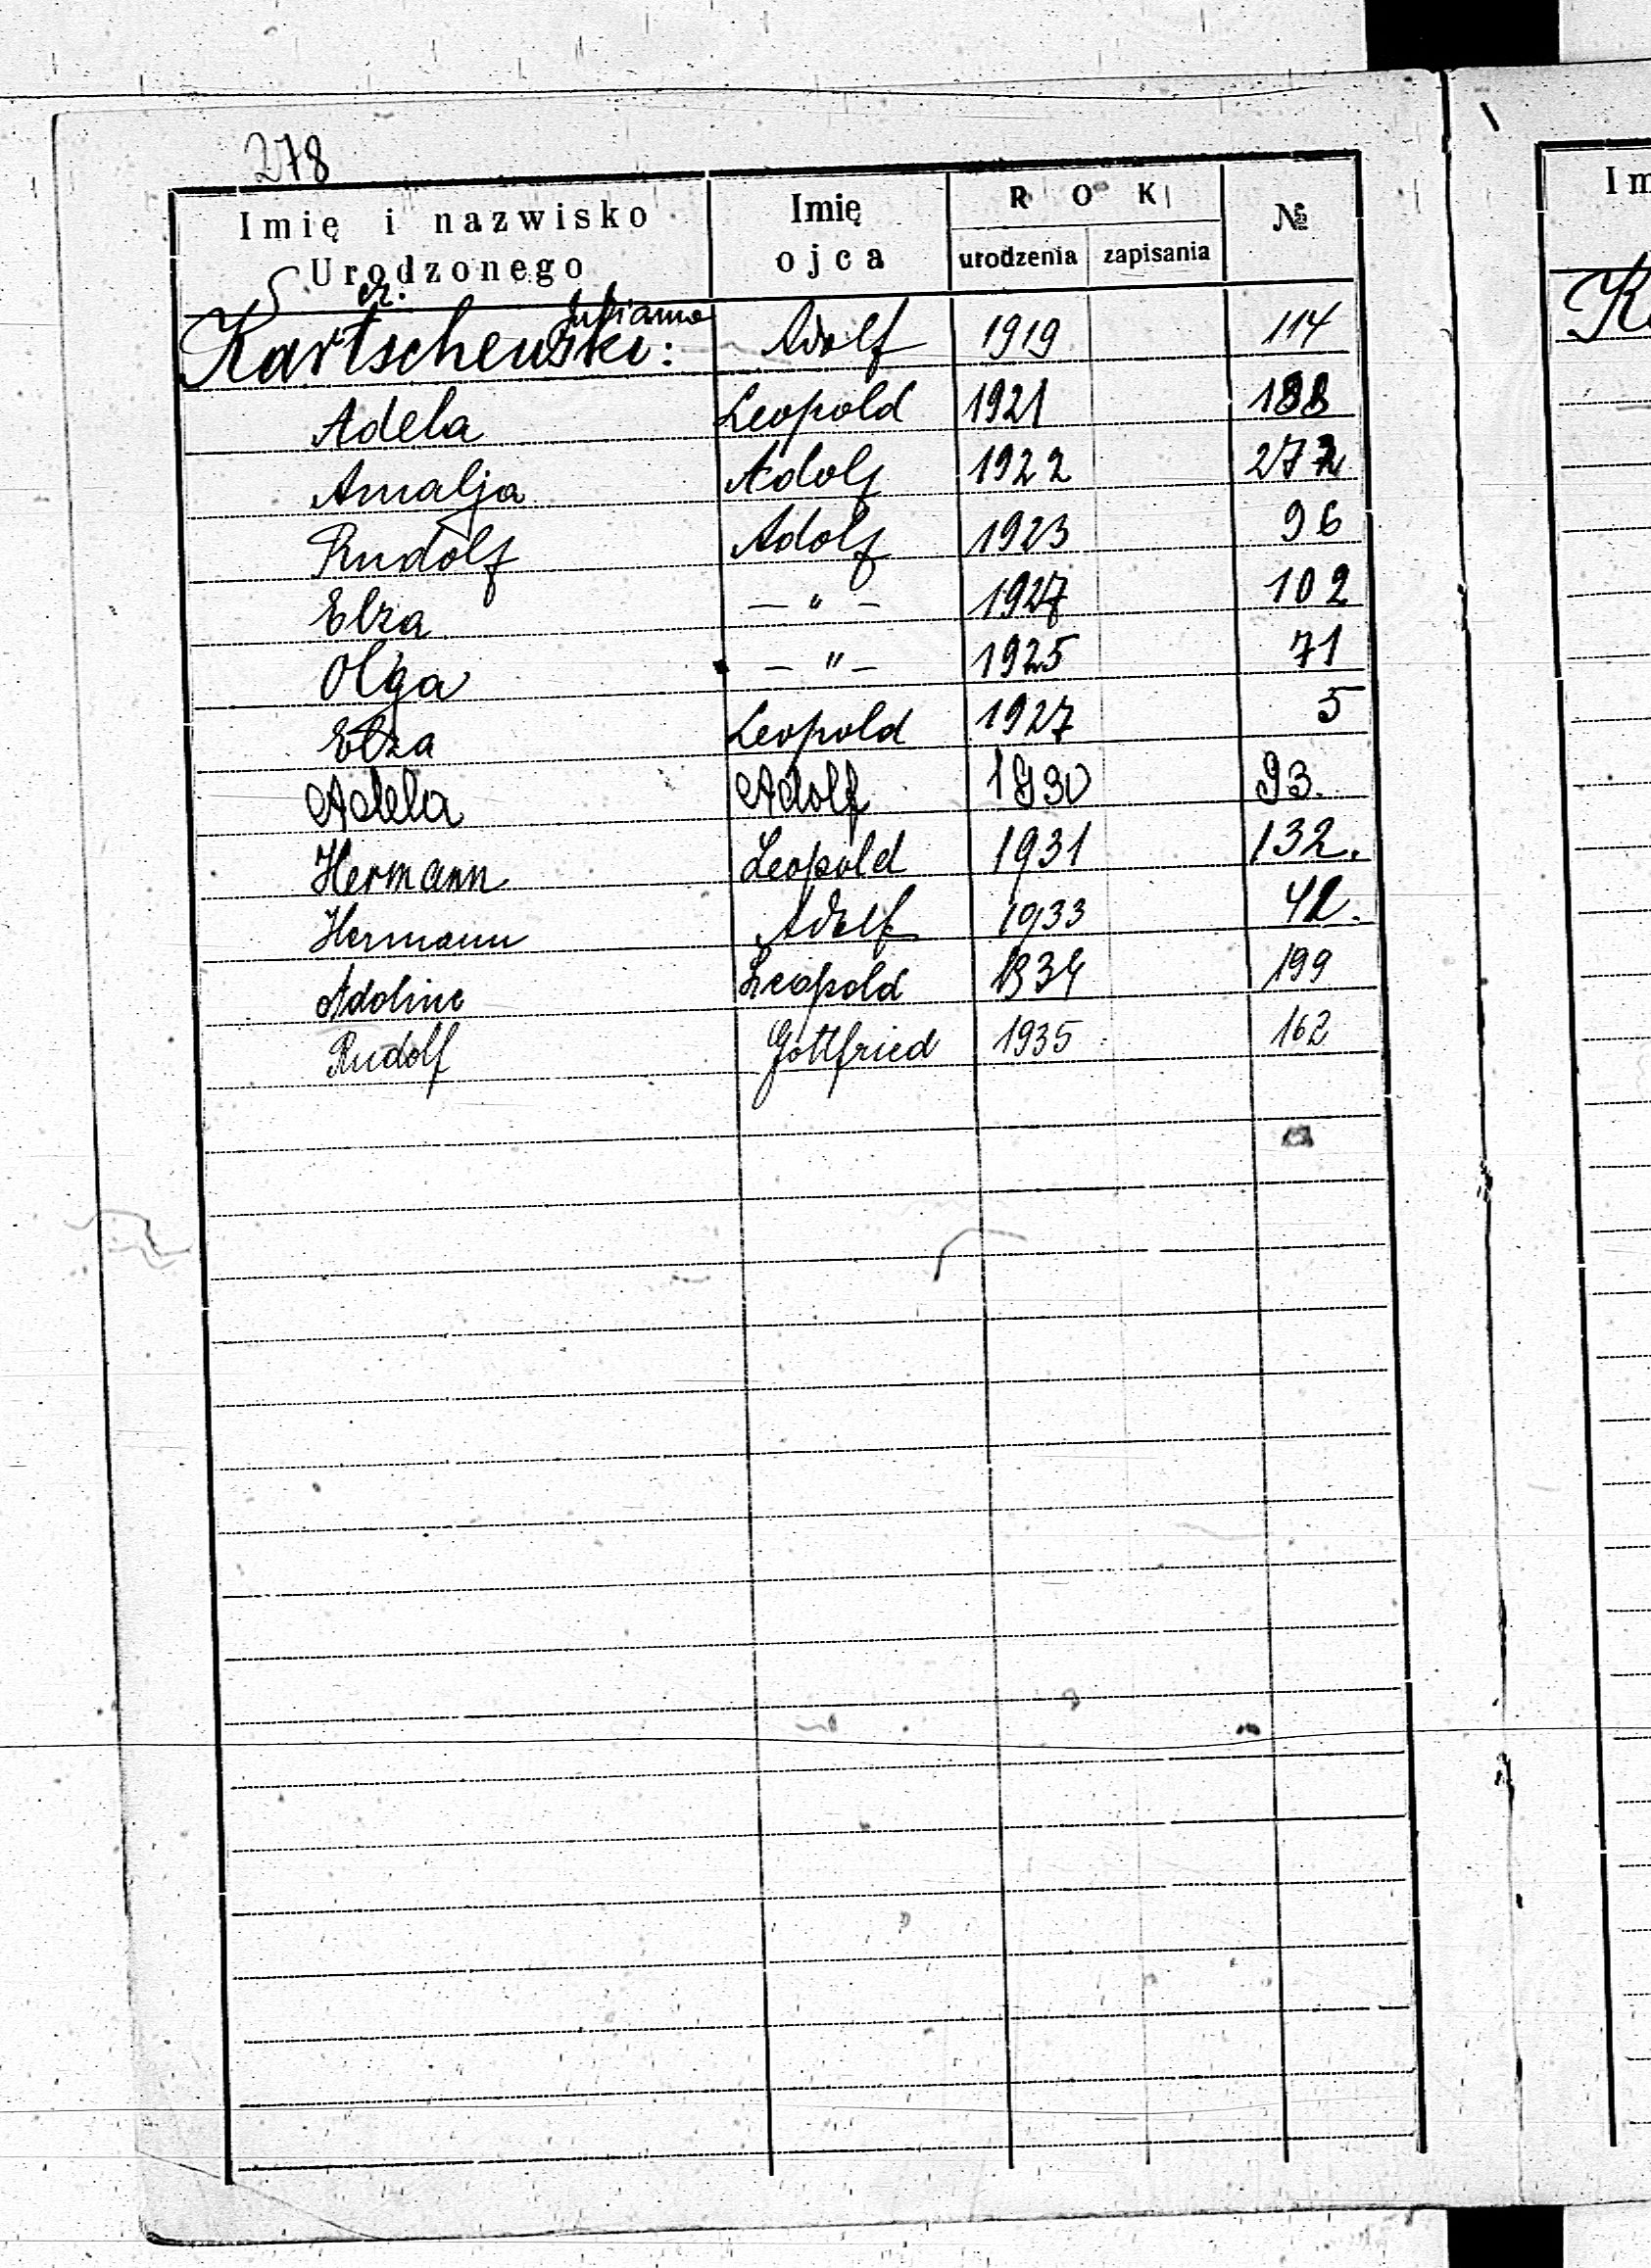 278
Imię i nazwisko Urodzonego | Imię ojca | ROK urodzenia | zapisania | №
er. Julianna
Kartschewski: Adolf 1919 114
Adela Leopold 1921 188
Amalja Adolf 1922 277
Rudolf Adolf 1923 96
Elza — " — 1927 102
Olga — " — 1925 71
Elza Leopold 1927 5
Adela Adolf 1930 93.
Hermann Leopold 1931 132.
Hermann Adolf 1933 42.
Adoline Leopold 1934 199
Rudolf Gottfried 1935 162
Im